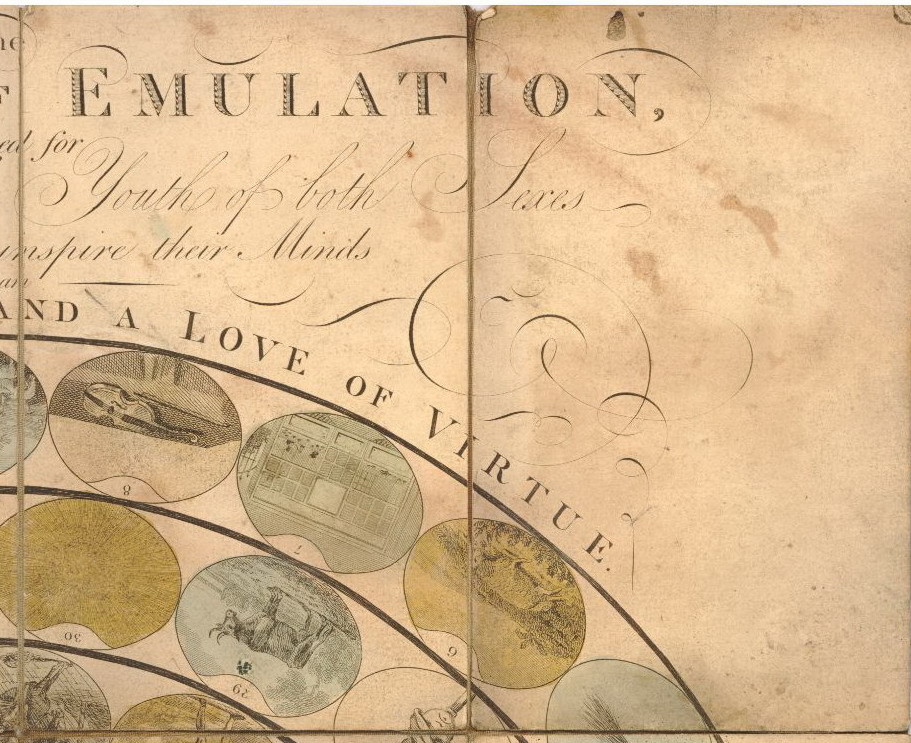 he
F EMULATION,
ed for
Youth of both Sexes
inspire their Minds
an
AND A LOVE OF VIRTUE.
8
7
6
30
29